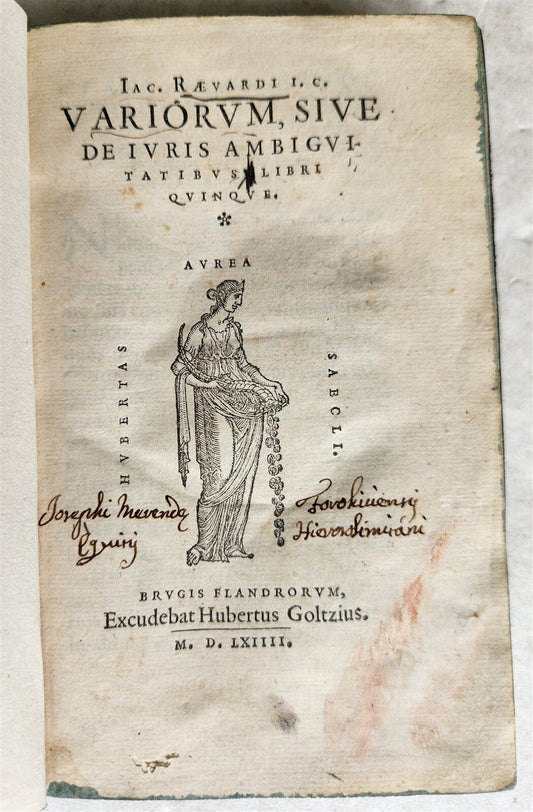 IAC. RÆVARDI I. C.
VARIORVM, SIVE
DE IVRIS AMBIGVI-
TATIBVS, LIBRI
QVINQVE.
*
AVREA
HVBERTAS
SAECLI.
Iosephi Merendę
Equitis
Hierosolimitani
BRVGIS FLANDRORVM,
Excudebat Hubertus Goltzius.
M. D. LXIIII.